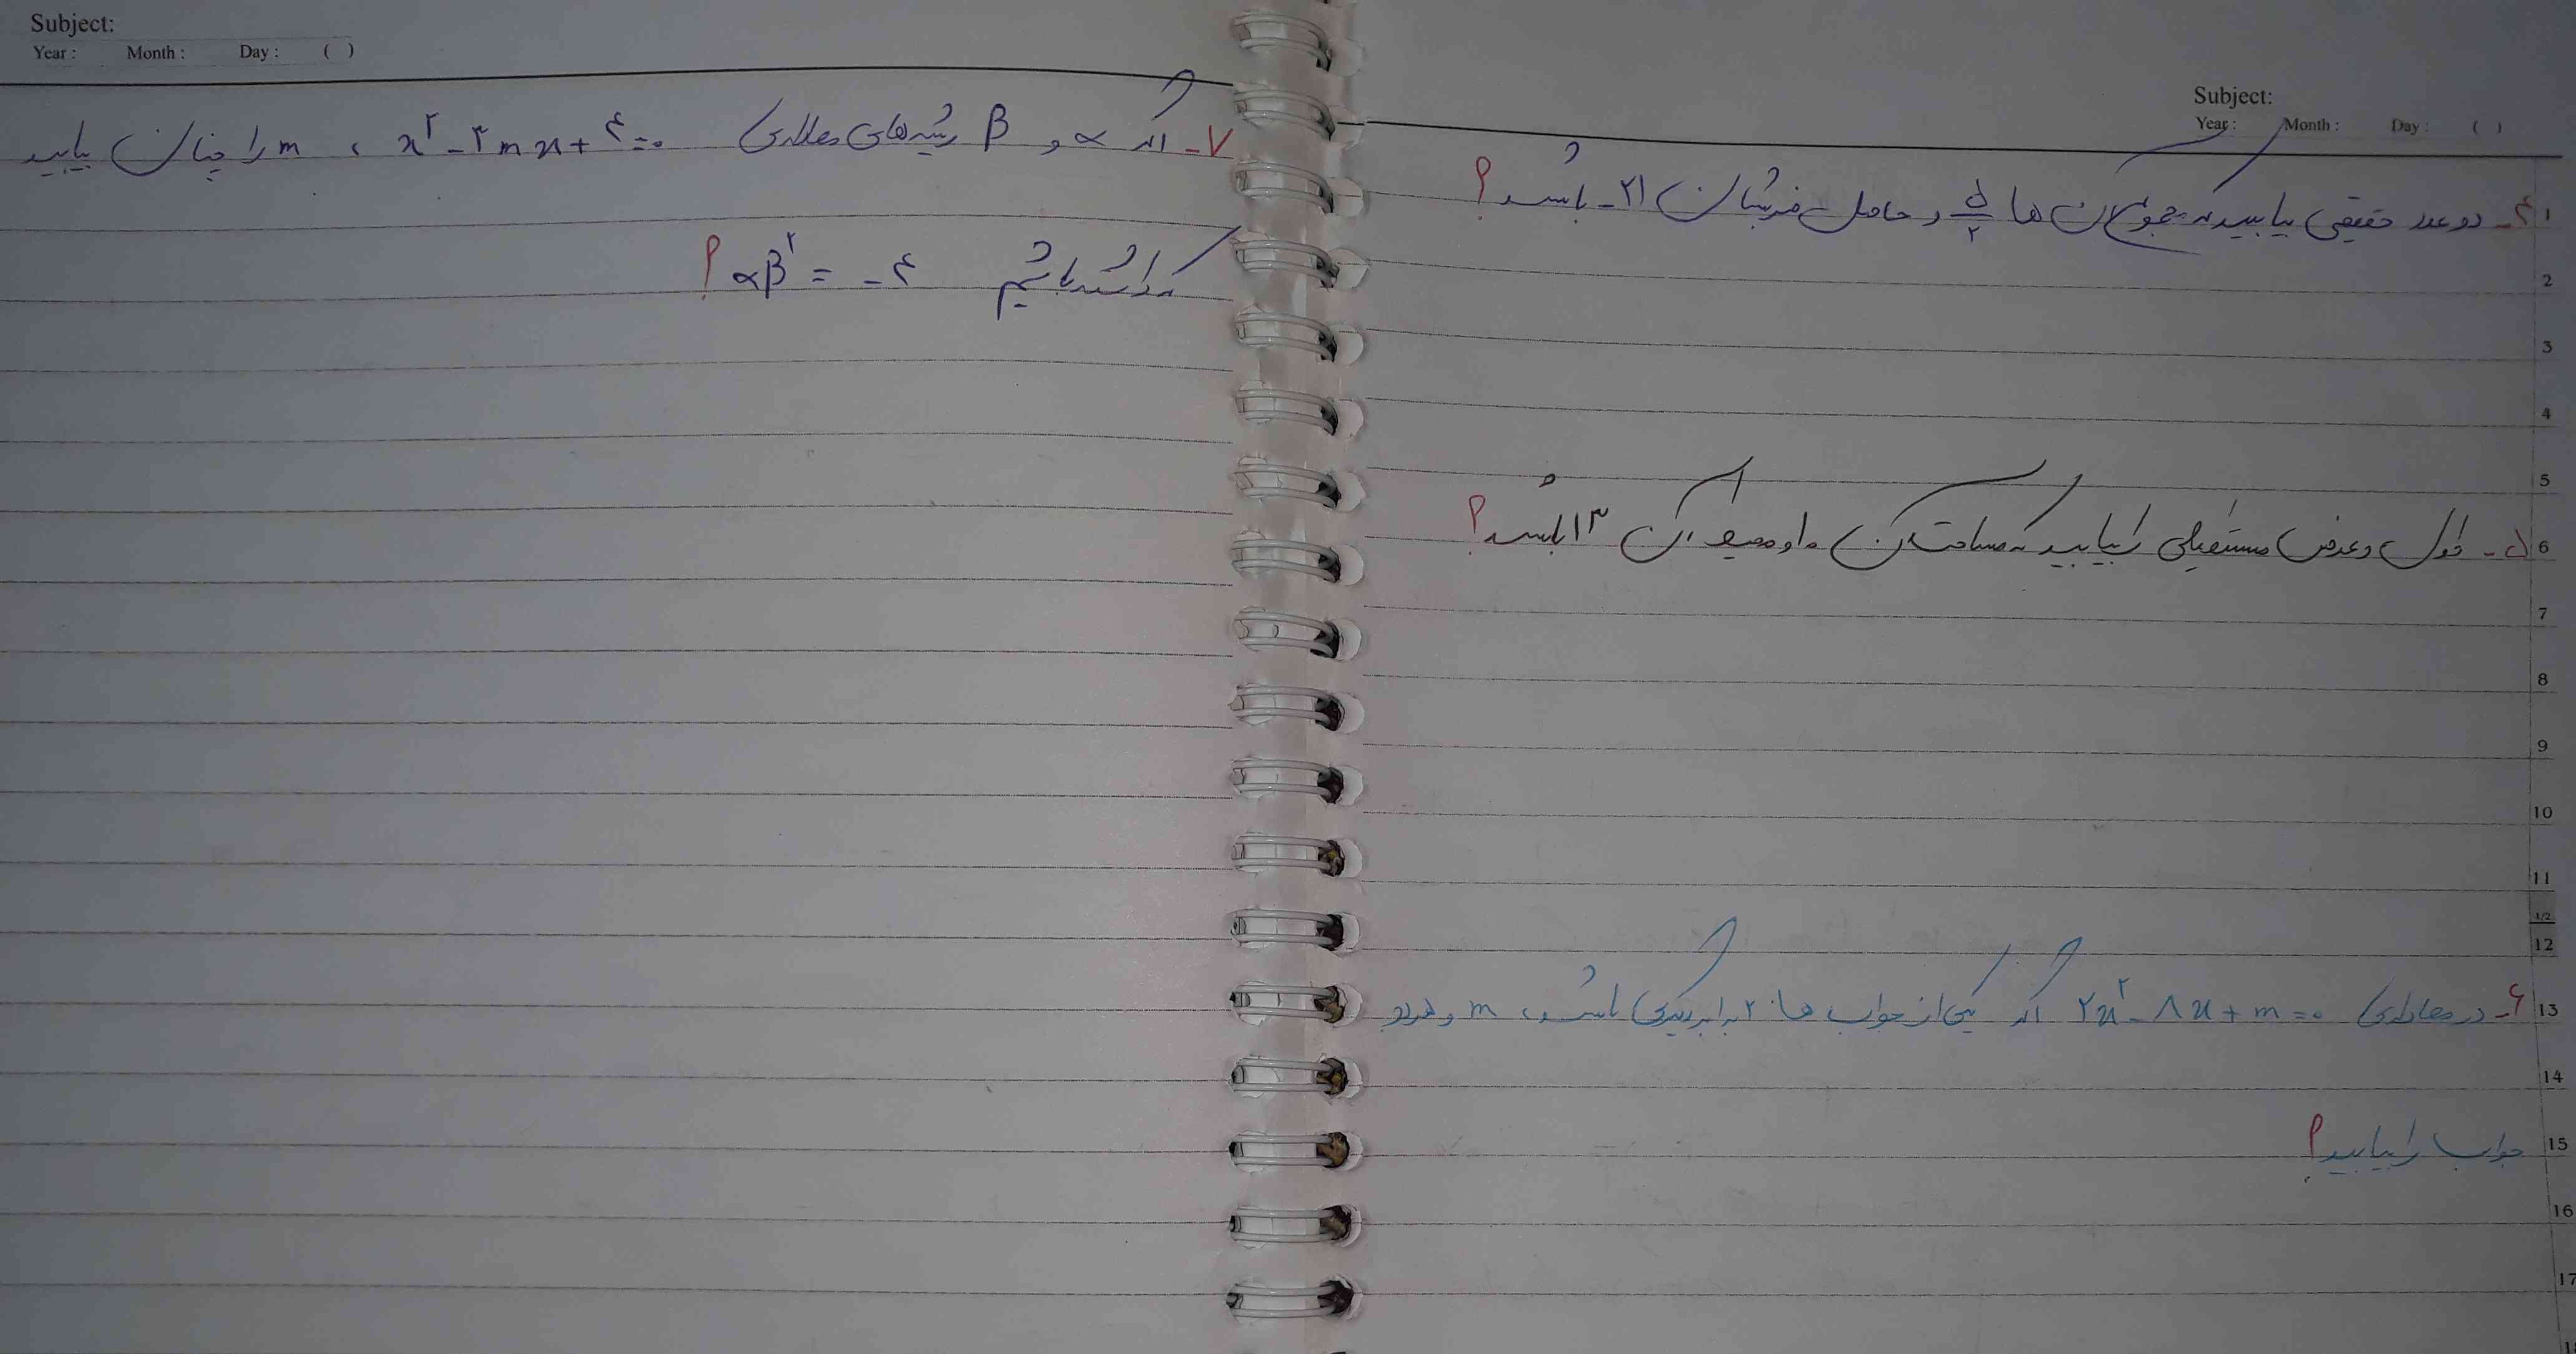 Subject:
Year : Month : Day : ( )
۴- دو عدد حقیقی بیابید که مجموع آن ها ۵/۲ و حاصل ضربشان ۲۱- باشد؟
۵- طول و عرض مستطیلی را بیابید که مساحت آن ۱۰ و محیط آن ۱۳ باشد؟
۶- در معادله‌ی ۲x^۲ - ۸x + m = ۰ اگر یکی از جواب ها ۲ برابر دیگری باشد، m و هر دو
جواب را بیابید؟
1
2
3
4
5
6
7
8
9
10
11
1/2
12
13
14
15
16
17
Subject:
Year : Month : Day : ( )
۷- اگر α و β ریشه‌های معادله‌ی x^۲ - ۳mx + ۴ = ۰ ، m را چنان بیابید
که داشته باشیم αβ^۲ = -۴ ؟